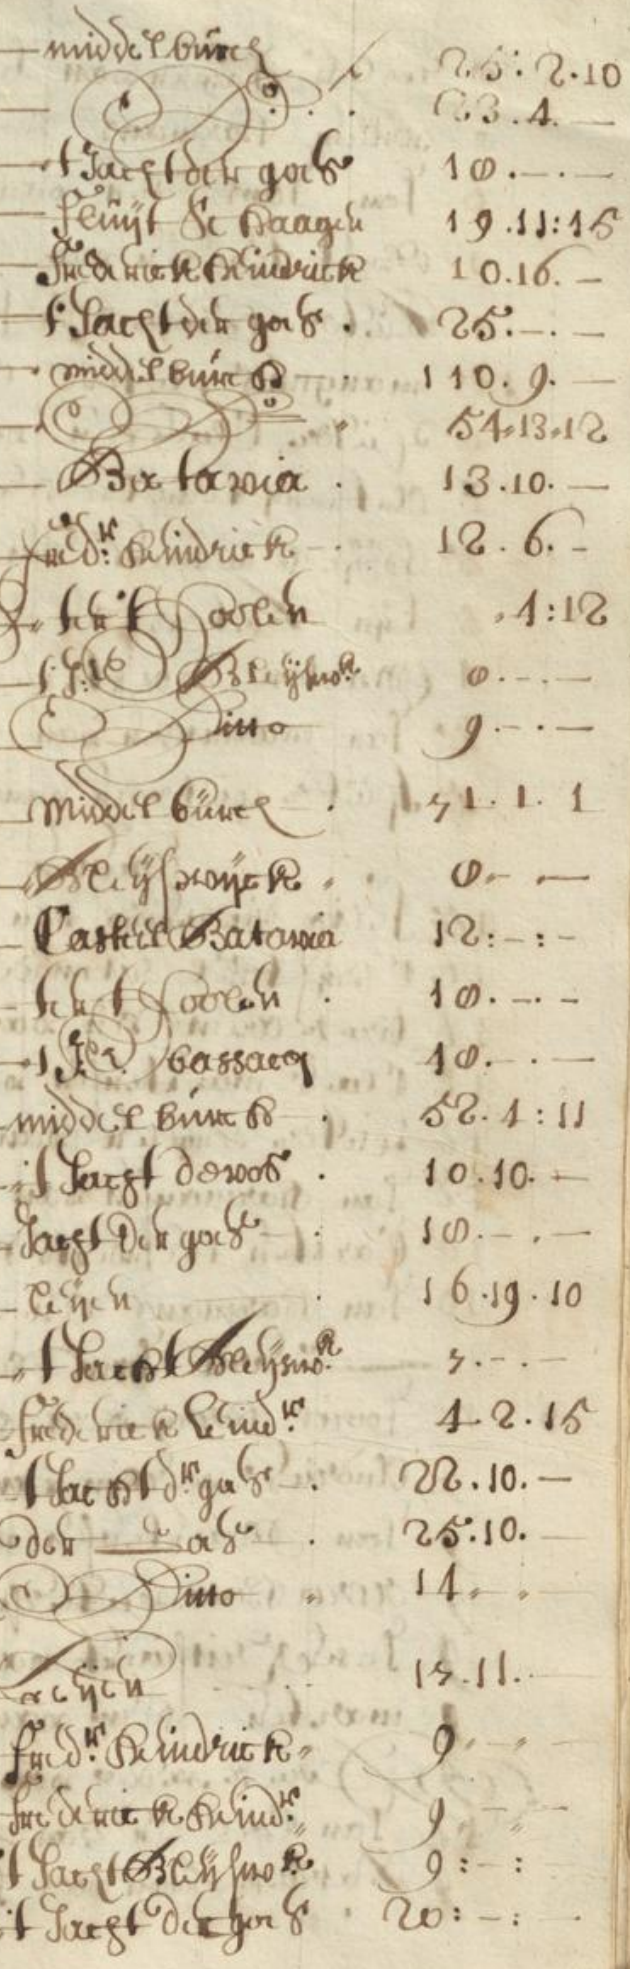 middelburch 25:2.10
Do . 23.4.—
t Jacht der goes 18.—.—
fluijt de Haagen 19.11:15
Frederick Heindrick 10.16.—
t Jacht der goes . 25.—.—
middelburch 110.9.—
Do 54.13.12
Batavia . 13.10.—
Fredr: Heindrick . 12.6.—
ter Toolen .1:12
Bleijsw: 8.—.—
Ditto 9.—.—
Middelburch . 71.1.1
Bleijswijck 8.—.—
Casteel Batavia 12:—:—
ter Toolen . 18.—.—
18.—.—
middelburch . 52.1:11
t Jacht de vos . 10.10.—
Jacht der goes . 18.—.—
16.19.10
t Jacht Bleijsw: 7.—.—
Frederick heindr: 42.15
t Jacht dr goes . 22.10.—
der Goes . 25.10.—
Ditto 14.
17.11.—
Fredr: Heindrick 9
Frederick Heindr: 9
t Jacht Bleijswk 9:—:
t Jacht der goes 20:—:—